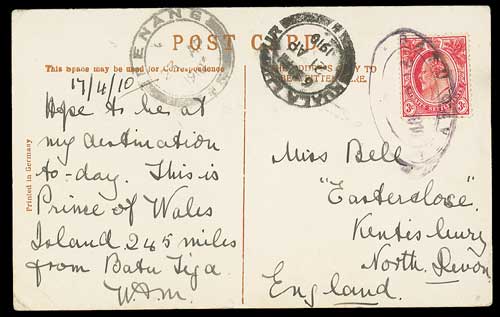 POST CARD
This Space may be used for Correspondence
PENANG
KUALA LUMPUR
1910
17/4/10
Hope to be at
my destination
to-day. This is
Prince of Wales
Island. 245 miles
from Batu Tiga.
W.A.M.
Printed in Germany
Miss Bell
"Easterclose".
Kentisbury
North Devon.
England.